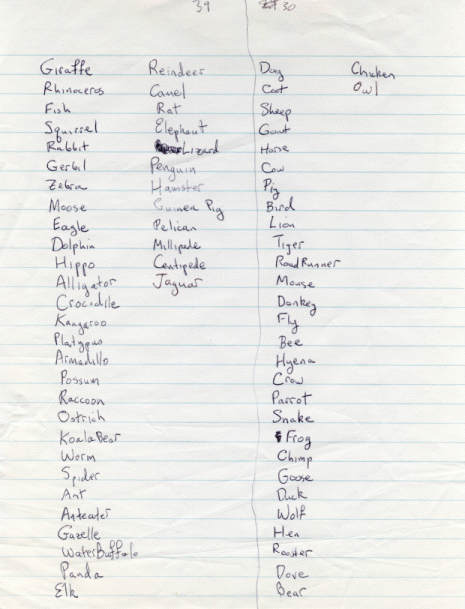 39
30
Giraffe
Rhinoceros
Fish
Squirrel
Rabbit
Gerbil
Zebra
Moose
Eagle
Dolphin
Hippo
Alligator
Crocodile
Kangaroo
Platypus
Armadillo
Possum
Raccoon
Ostrich
KoalaBear
Worm
Spider
Ant
Anteater
Gazelle
WaterBuffalo
Panda
Elk
Reindeer
Camel
Rat
Elephant
Lizard
Penguin
Hamster
Guinea Pig
Pelican
Millipede
Centipede
Jaguar
Dog
Cat
Sheep
Goat
Horse
Cow
Pig
Bird
Lion
Tiger
RoadRunner
Mouse
Donkey
Fly
Bee
Hyena
Crow
Parrot
Snake
Frog
Chimp
Goose
Duck
Wolf
Hen
Rooster
Dove
Bear
Chicken
Owl